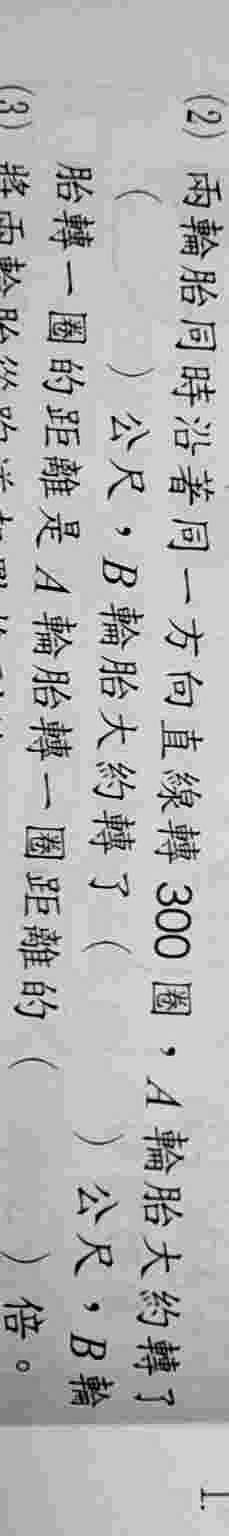 (2) 兩輪胎同時沿著同一方向直線轉 300 圈，A 輪胎大約轉了
(　　) 公尺，B 輪胎大約轉了 (　　) 公尺，B 輪
胎轉一圈的距離是 A 輪胎轉一圈距離的 (　　) 倍。
(3) 將兩輪胎從
1.